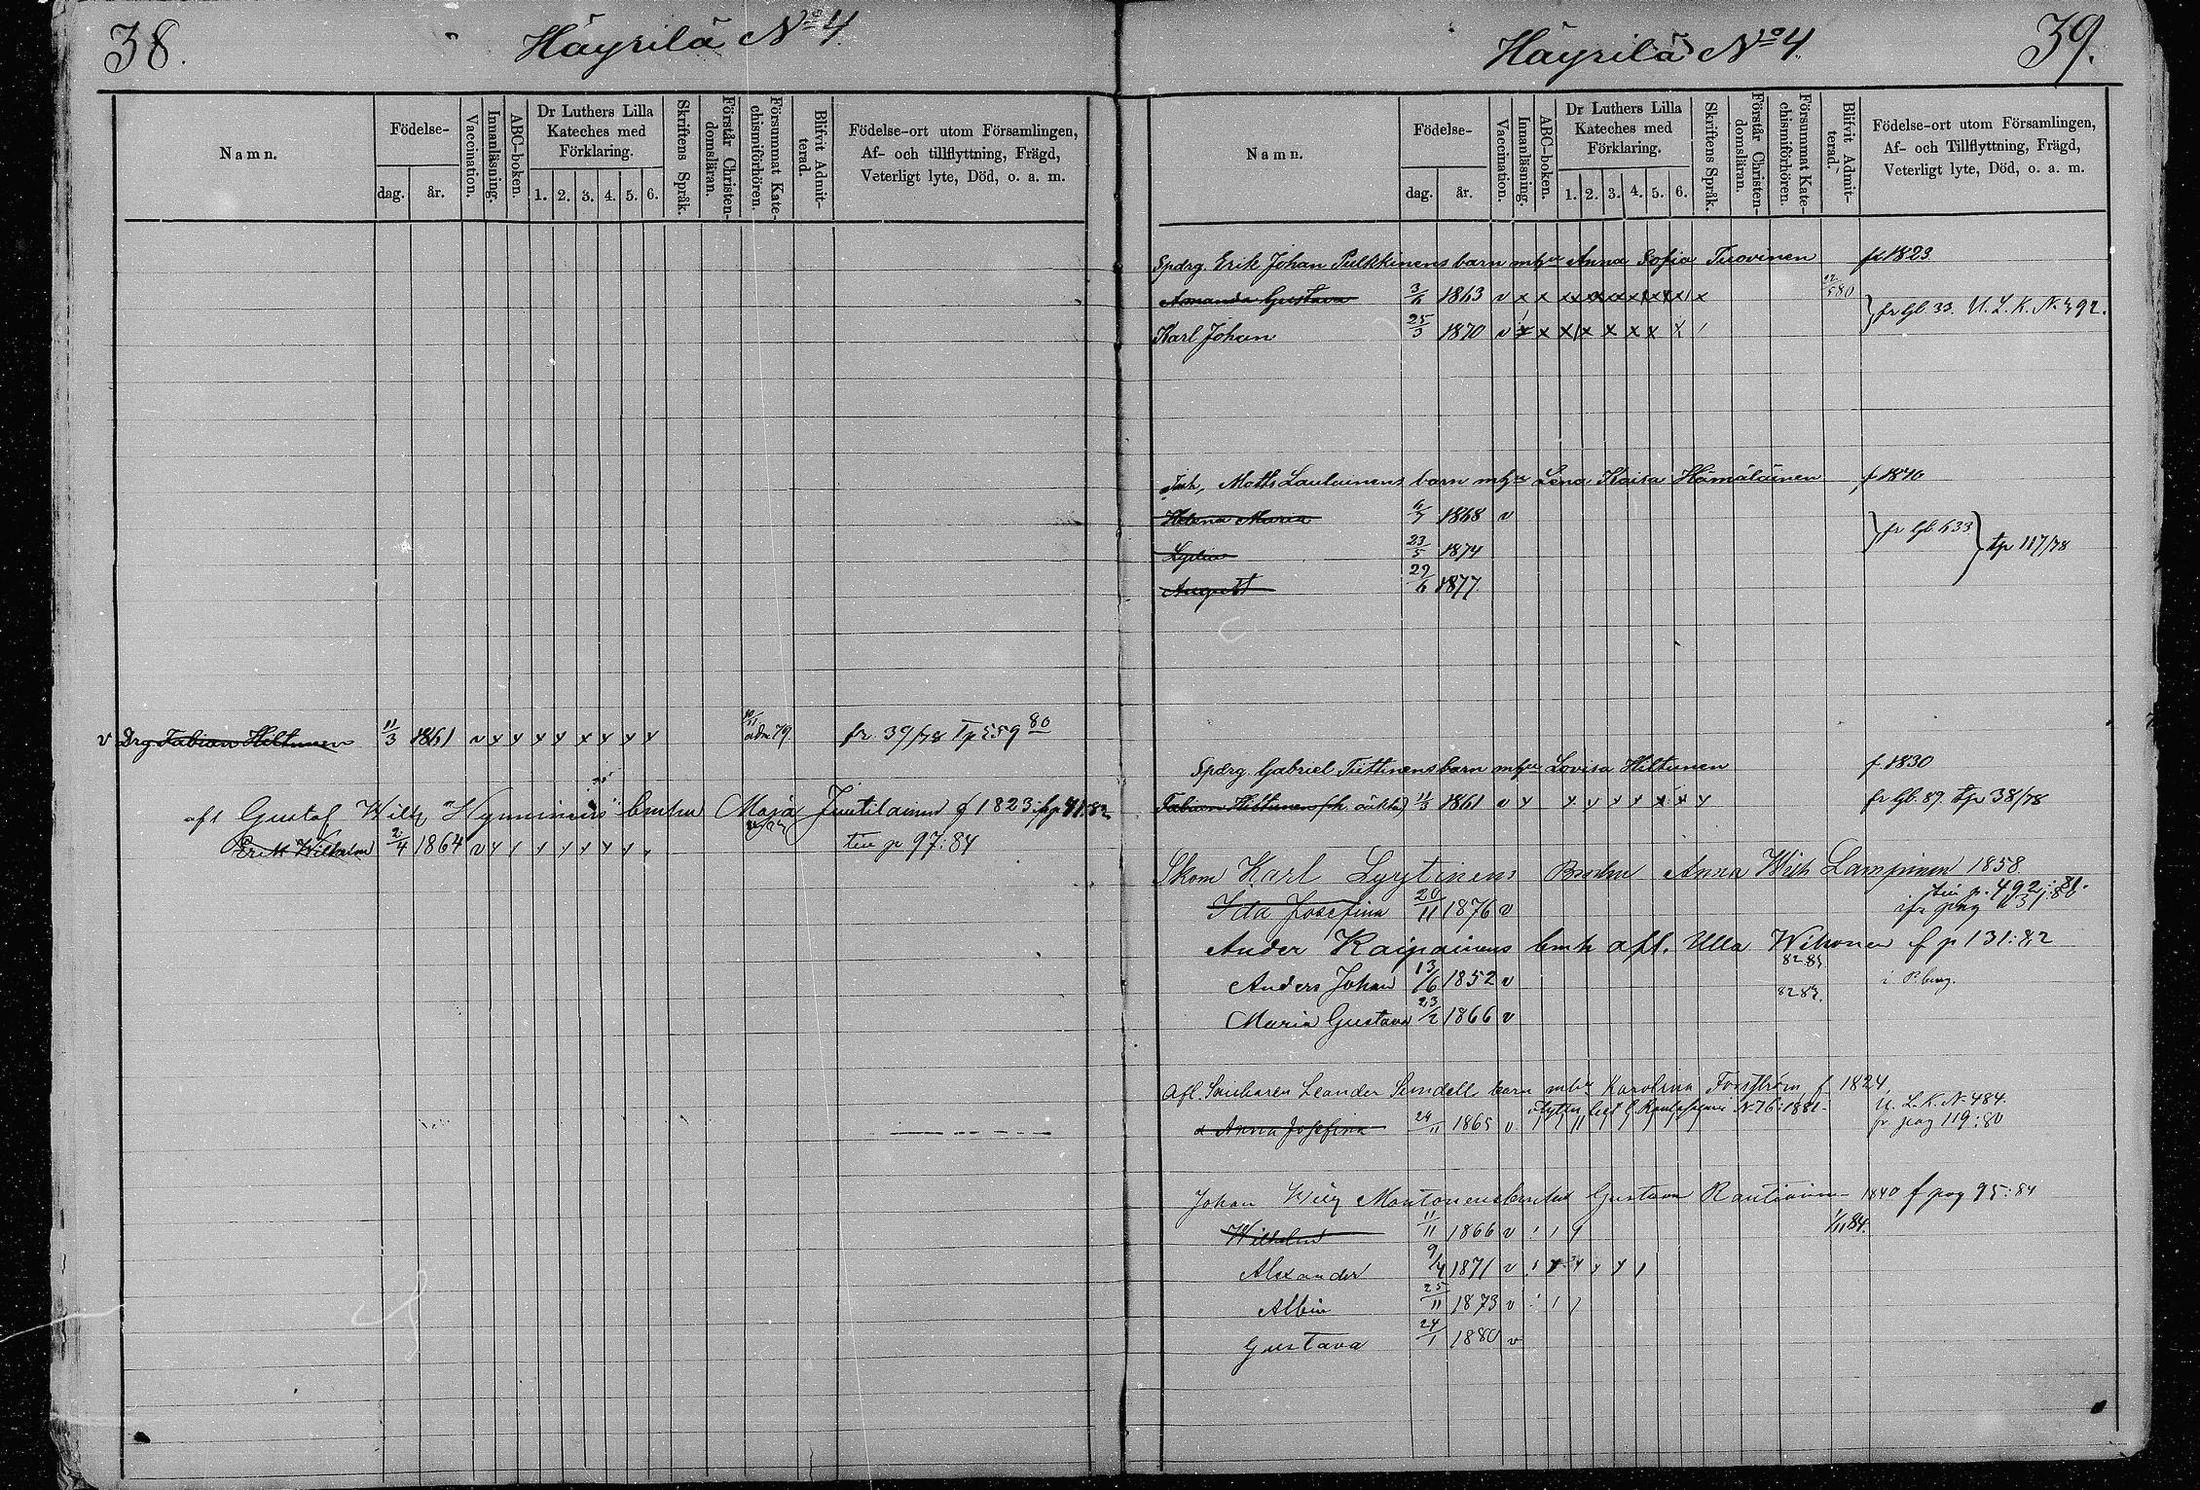 38.
Häyrilä No 4.
Namn.
Födelse-
dag.
år.
Vaccination.
Innanläsning.
ABC-boken.
Dr Luthers Lilla
Kateches med
Förklaring.
1. 2. 3. 4. 5. 6.
Skriftens Språk.
Förstår Christen-
domsläran.
Försummat Kate-
chismiförhören.
Blifvit Admit-
terad.
Födelse-ort utom Församlingen,
Af- och tillflyttning, Frägd,
Veterligt lyte, Död, o. a. m.
v Drg Fabian Hiltunen 11/3 1861 v x x x x x x x x 79 fr. 39/78 Tp 559 80
afl Gustaf Wilh Hynninens Maja Juutilainen f 1823
Wilhelm 2/4 1864 v 97:84
39.
Häyrilä No 4.
Namn.
Födelse-
dag.
år.
Vaccination.
Innanläsning.
ABC-boken.
Dr Luthers Lilla
Kateches med
Förklaring.
1. 2. 3. 4. 5. 6.
Skriftens Språk.
Förstår Christen-
domsläran.
Försummat Kate-
chismiförhören.
Blifvit Admit-
terad.
Födelse-ort utom Församlingen,
Af- och Tillflyttning, Frägd,
Veterligt lyte, Död, o. a. m.
Spdrg. Erik Johan Pulkkinens barn mhu Anna Sofia Tuovinen f 1823
Amanda Gustava 3/6 1863 v x x x x x x x x x
fr Gb. 33. U. L. K. N. 392.
Karl Johan 25/3 1870 v x x x x x x x x
Inh, Matts Laulainens barn mhu Lena Kaisa Hämäläinen f 1840
Helena Maria 1868 v
fr Gb. 633 tp 117/78
23/5 1874
August 29/6 1877
Spdrg. Gabriel Tuttinens barn mhu Lovisa Hiltunen f. 1830
Fabian Hiltunen 11/3 1861 v x x x x x x x x fr Gb. 89. tp 38/78
Skom Karl Lyytinens Anna Wilh Lampinen 1858
Ida Josefina 20/11 1876 v
Ander Kaipainens bmh afl. Ulla Wihonen f p 131:82
Anders Johan 13/6 1852 v
Maria Gustava 23/2 1866 v
Afl. Leander Sundell barn mhu Karolina Forsström f 1824
U. L. K. N. 484.
Anna Josefina 24/11 1865 v fr pag 119:80
Johan Wilh Montonens Gustava Rautiainen 1840 f pag 95:84
Wilhelm 11/11 1866 v
Alexander 9/4 1871 v
Albin 25/11 1873 v
Gustava 24/1 1880 v